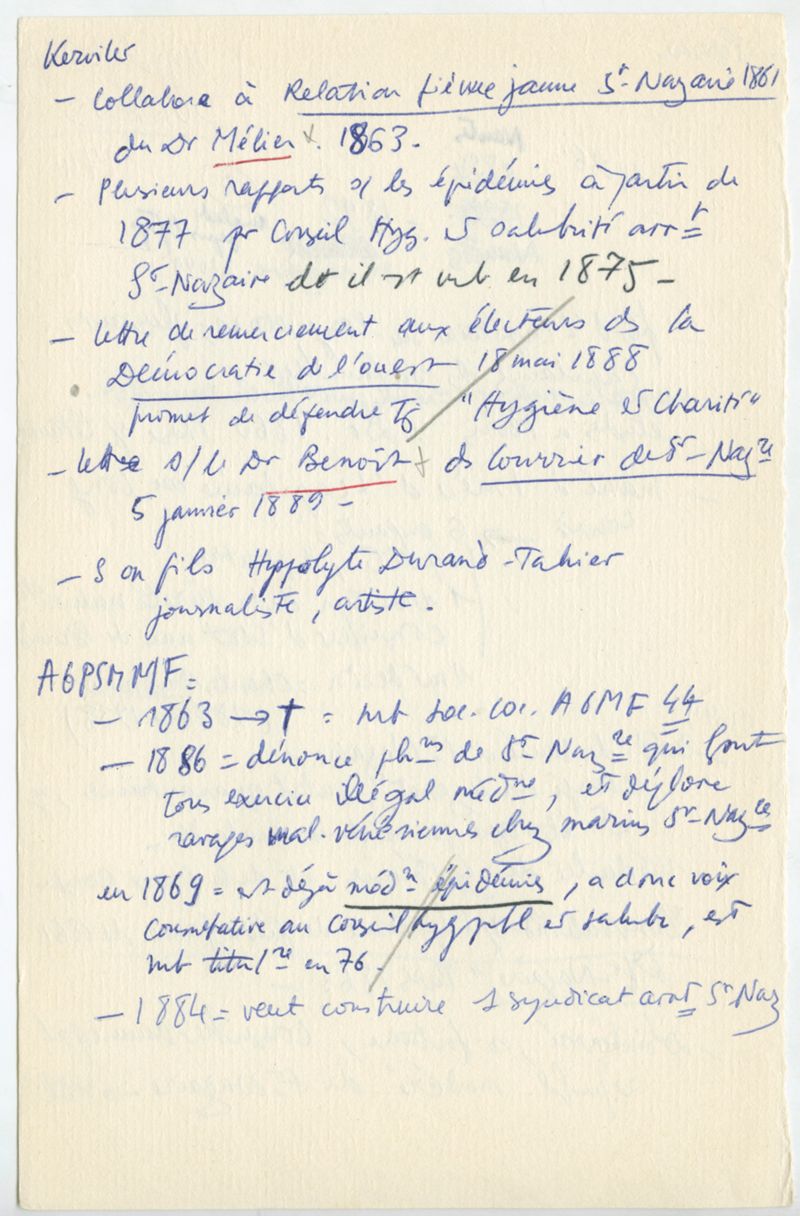 Kerviler
- Collabore à Relation fièvre jaune St-Nazaire 1861
du Dr Mélier +. 1863.
- Plusieurs rapports s/ les épidémies à partir de
1877 pr Conseil Hyg. et salubrité arrt
St-Nazaire dt il est mb en 1875 -
- lettre de remerciement aux électeurs ds la
Démocratie de l'ouest 18 mai 1888
promet de défendre tj "Hygiène et Charité"
- lettre s/ le Dr Benoît + ds Courrier de St-Nazre
5 janvier 1889 -
- Son fils Hippolyte Durand-Tahier
journaliste, artiste.
AGPSMMF =
- 1863 → † = mb soc. loc. AGMF 44
- 1886 = dénonce phns de St Nazre qui font
tous exercice illégal médne, et déplore
ravages mal. vénériennes chez marins St-Nazre
en 1869 = est déjà médn épidémies, a donc voix
consultative au conseil hyg pbl et salubr, est
mb titulre en 76 -
- 1884 = veut construire 1 syndicat arrt St-Naz